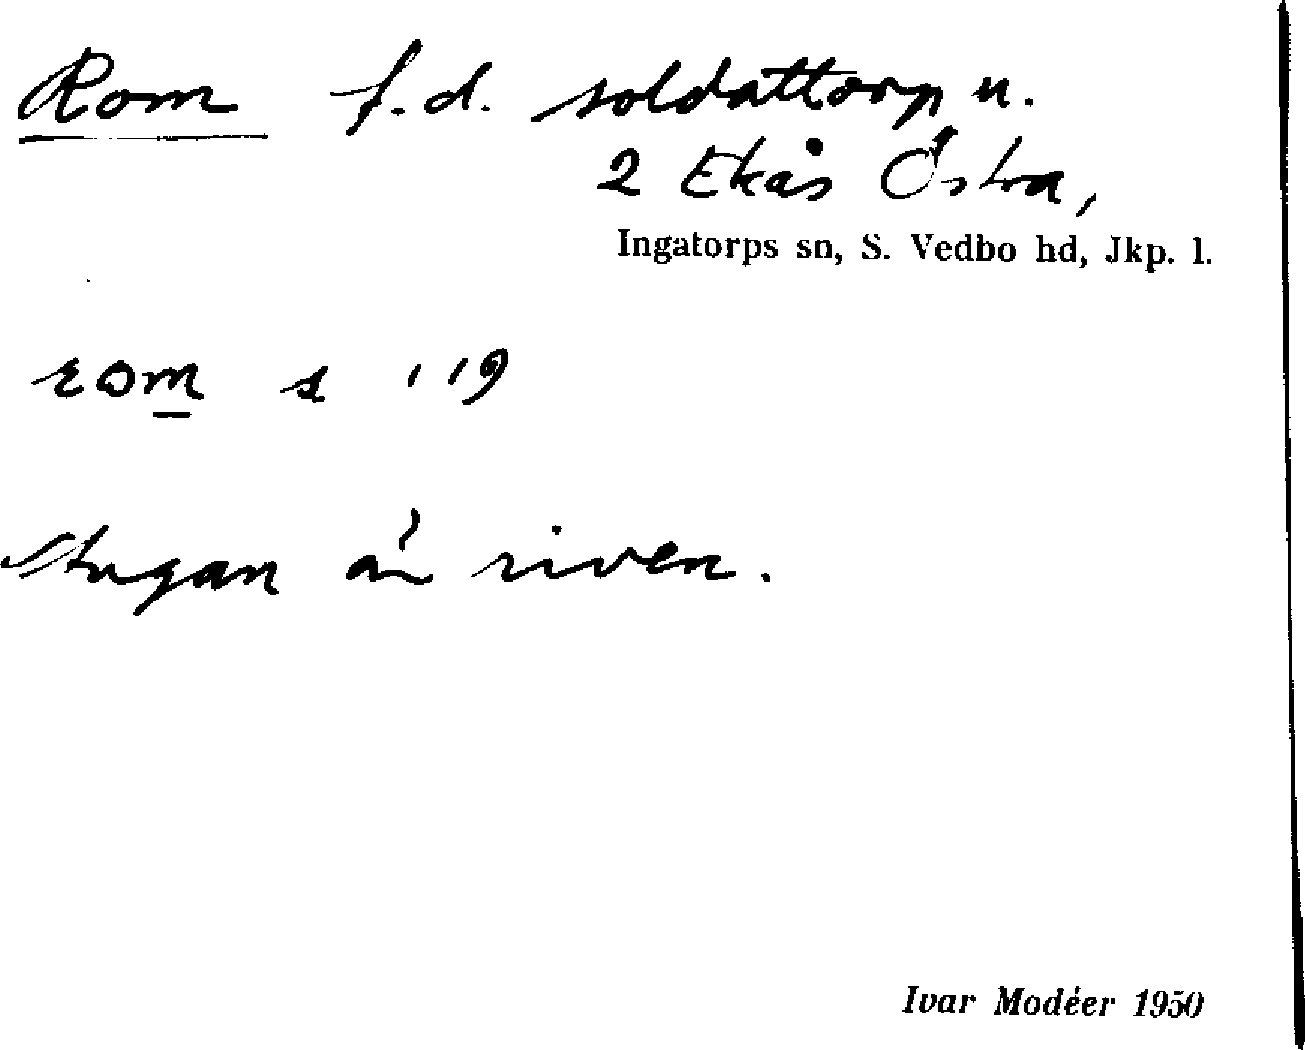 Rom f.d. soldattorp u.
2 Ekås Östra,
Ingatorps sn, S. Vedbo hd, Jkp. l.
rom s 19
Stugan är riven.
Ivar Modéer 1950